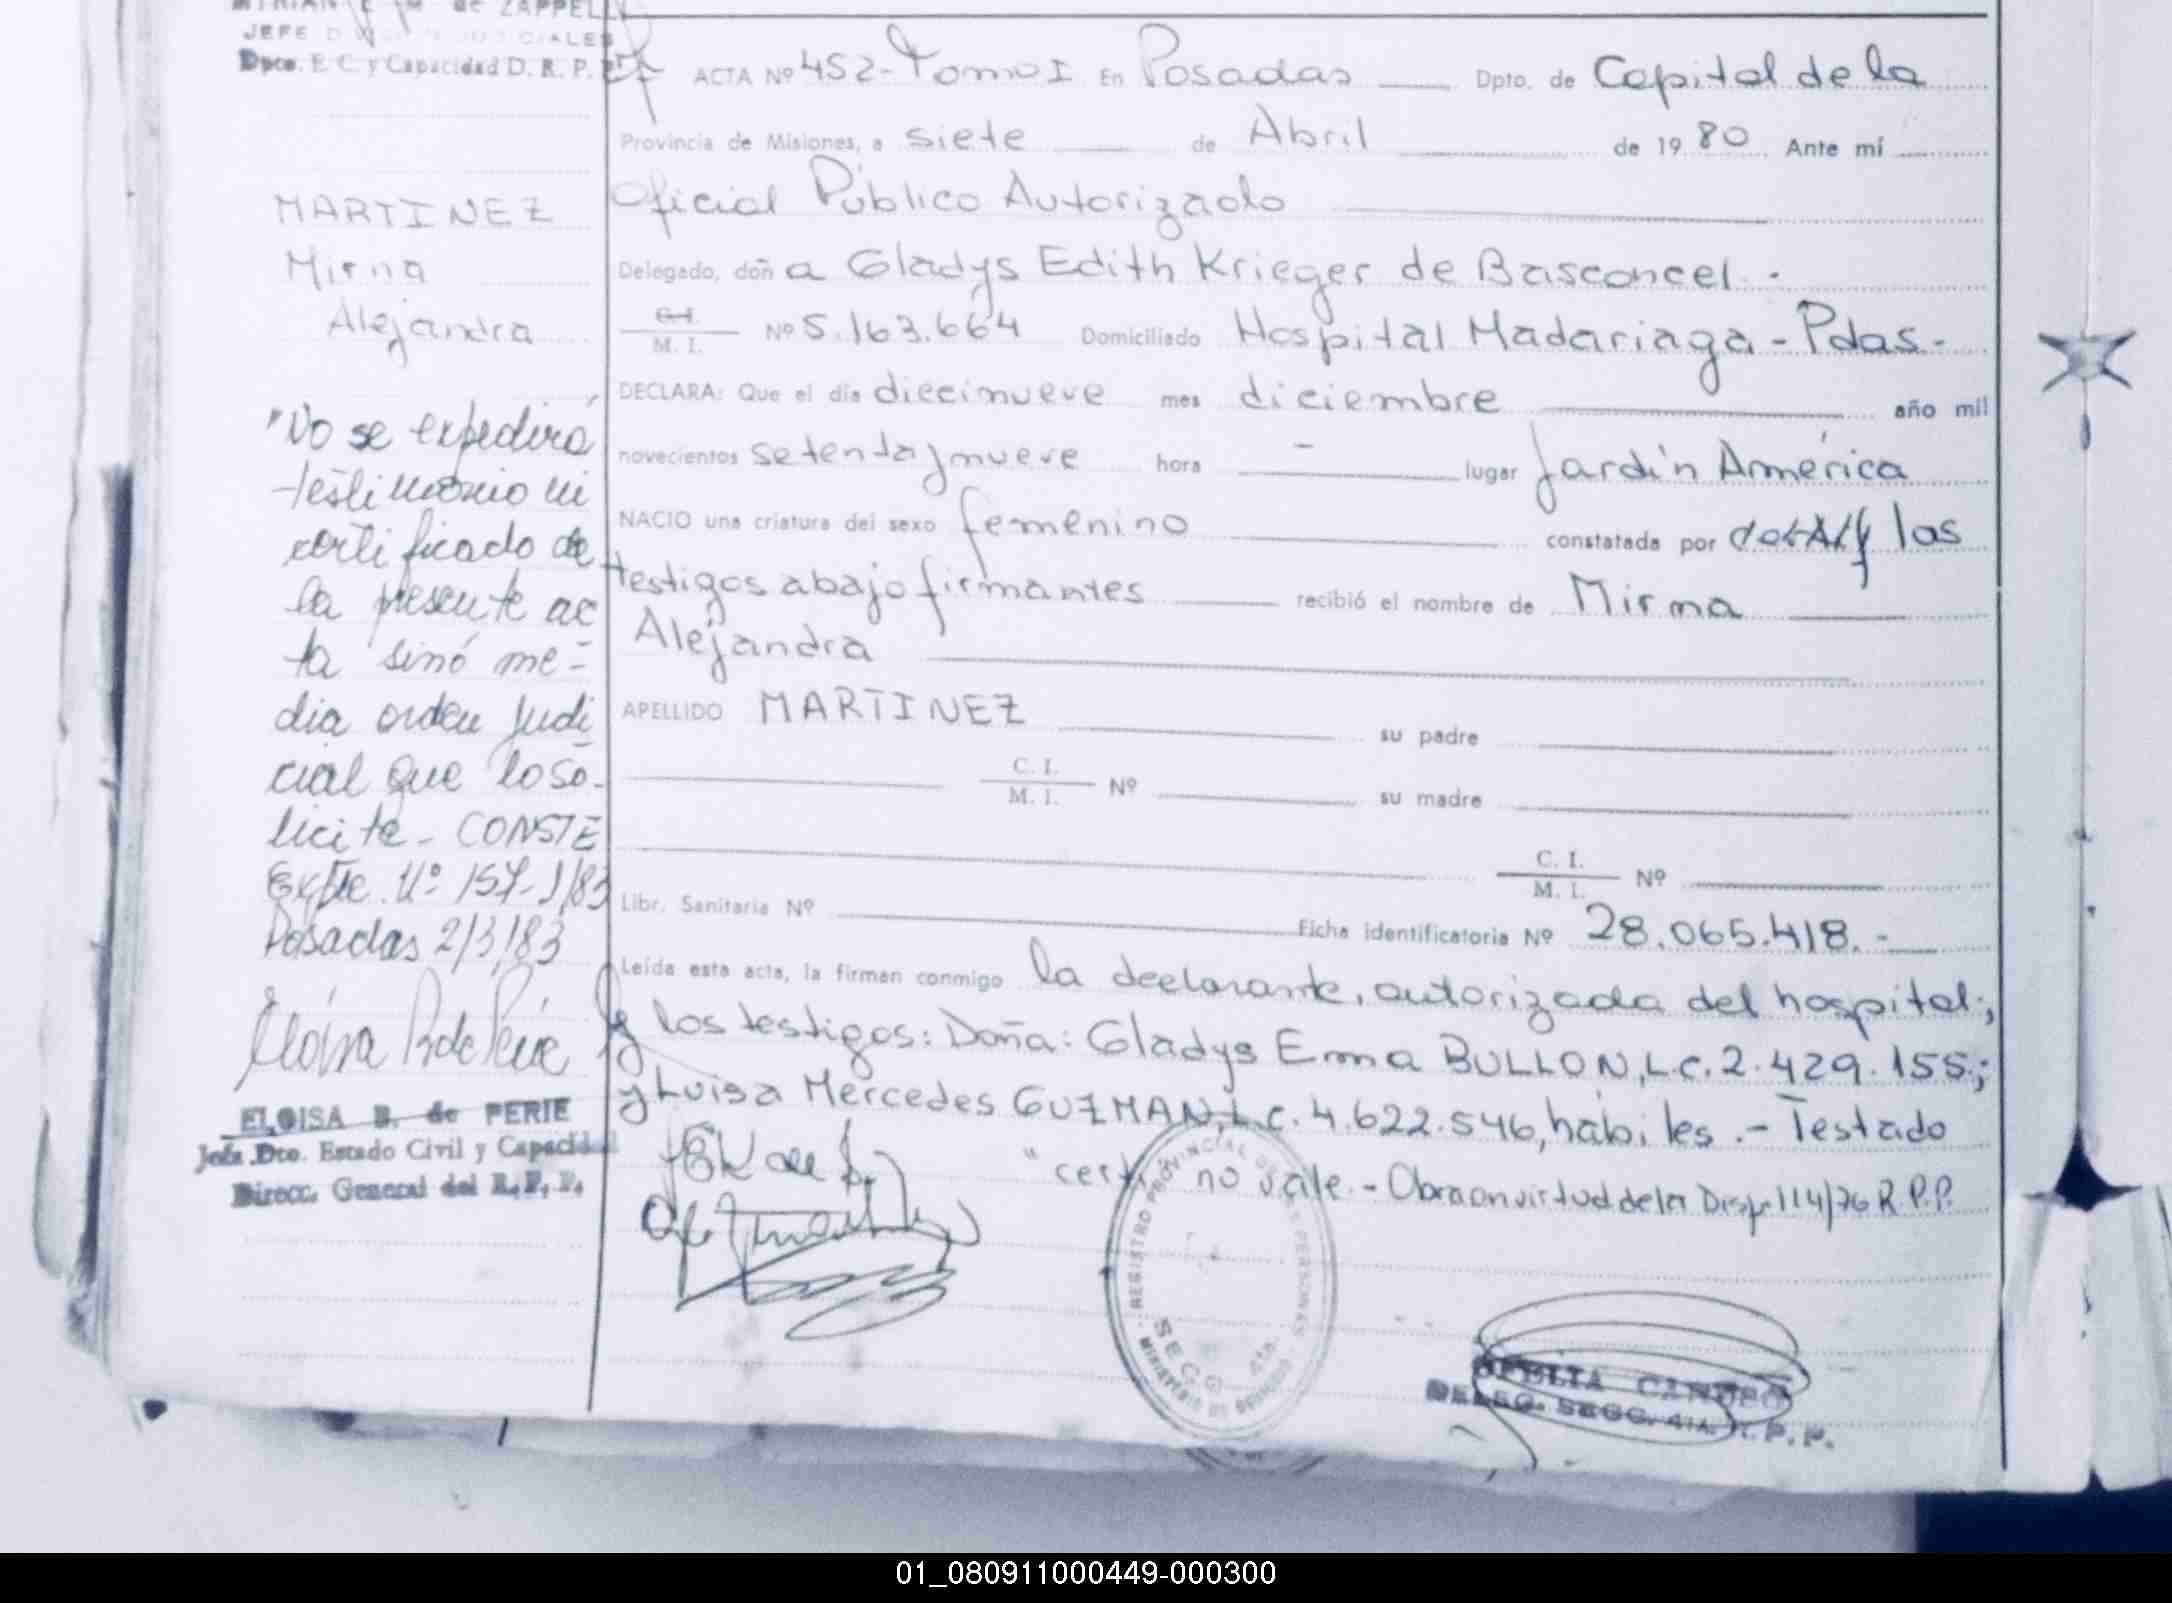 JEFE D
Dpto. E. C. y Capacidad D. R. P. P.
ACTA Nº 452 - Tomo I En Posadas Dpto. de Capital de la
Provincia de Misiones, a siete de Abril de 1980 Ante mí
Oficial Público Autorizado
Delegado, doña Gladys Edith Krieger de Basconcel.
C.I.
M. I. Nº 5.163.664 Domiciliado Hospital Madariaga - Pdas.-
DECLARA: Que el día diecinueve mes diciembre año mil
novecientos setenta y nueve hora - lugar Jardín América
NACIO una criatura del sexo femenino constatada por las
testigos abajo firmantes recibió el nombre de Mirna
Alejandra
APELLIDO MARTINEZ su padre
C. I.
M. I. Nº su madre
C. I.
M. I. Nº
Libr. Sanitaria Nº Ficha identificatoria Nº 28.065.418.-
Leída esta acta, la firman conmigo la declarante, autorizada del hospital;
y los testigos: Doña: Gladys Enma BULLON, L.C. 2.429.155.;
y Luisa Mercedes GUZMAN, L.C. 4.622.546, hábiles.- Testado
"certi" no vale.- Obra en virtud de la Disp. 114/76 R.P.P.
MARTINEZ
Mirna
Alejandra
"No se expedirá
testimonio ni
certificado de
la presente ac
ta sinó me-
dia orden judi
cial que lo so-
licite - CONSTE
Expte. Nº 157-J/83
Posadas 2/3/83
ELOISA B. de PERIE
Jefa Dto. Estado Civil y Capacidad
Direcc. General del R. P. P.
REGISTRO PROVINCIAL DE LAS PERSONAS
SECC. 4ta.
MINISTERIO DE GOBIERNO
OFELIA
DELEG. SECC. 4TA. R. P. P.
01_080911000449-000300